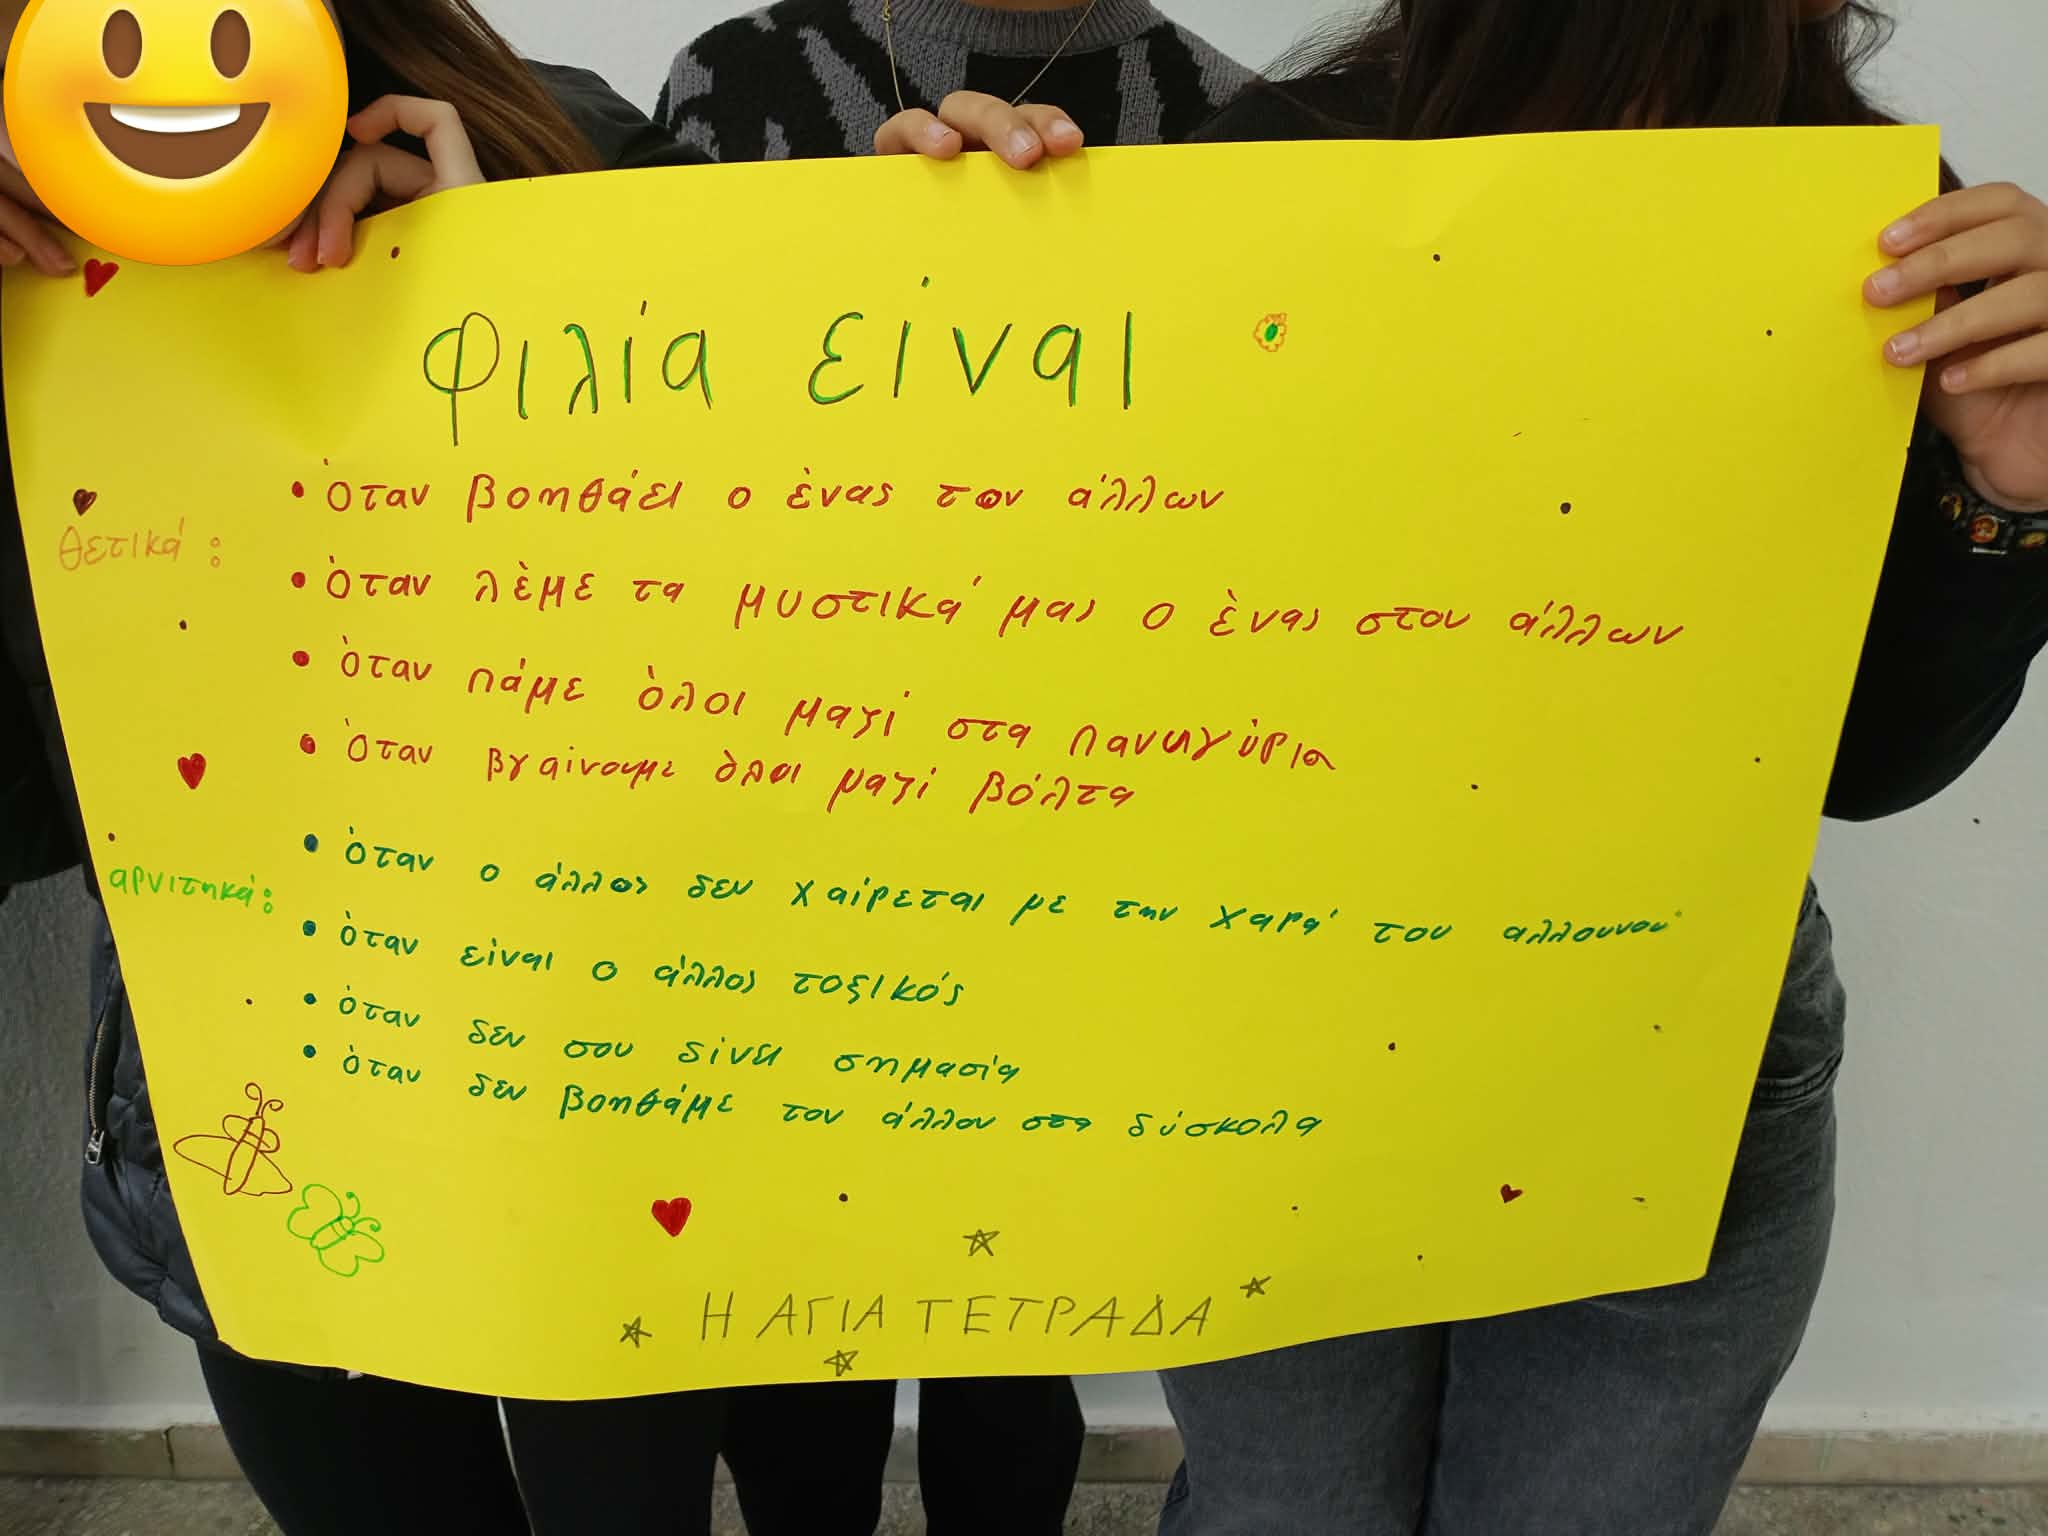 Φιλία είναι
θετικά:
• όταν βοηθάει ο ένας τον άλλων
• όταν λέμε τα μυστικά μας ο ένας στον άλλων
• όταν πάμε όλοι μαζί στα παναγύρια
• όταν βγαίνουμε όλοι μαζί βόλτα
αρνιτηκά:
• όταν ο άλλος δεν χαίρεται με την χαρά του αλλουνού
• όταν είναι ο άλλος τοξικός
• όταν δεν σου δίνει σημασία
• όταν δεν βοηθάμε τον άλλον στα δύσκολα
Η ΑΓΙΑ ΤΕΤΡΑΔΑ